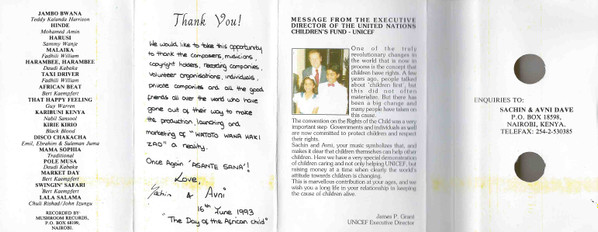 JAMBO BWANA
Teddy Kalanda Harrison
HINDE
Mohamed Amin
HARUSI
Sammy Wanje
MALAIKA
Fadhili William
HARAMBEE, HARAMBEE
Daudi Kabaka
TAXI DRIVER
Fadhili William
AFRICAN BEAT
Bert Kaempfert
THAT HAPPY FEELING
Guy Warren
KARIBUNI KENYA
Nabil Sansool
KIRIE KIRIO
Black Blood
DISCO CHAKACHA
Emil, Ebrahim & Suleman Juma
MAMA SOPHIA
Traditional
POLE MUSA
Daudi Kabaka
MARKET DAY
Bert Kaempfert
SWINGIN' SAFARI
Bert Kaempfert
LALA SALAMA
Chuli Bishad/John Izungu
RECORDED BY
MUSHROOM RECORDS,
P.O. BOX
NAIROBI.
Thank You!
We would like to take this opportunity
to thank the composers, musicians,
copyright holders, recording companies,
volunteer organisations, individuals,
private companies and all the good
friends all over the world who have
gone out of their way to make
the production, launching and
marketing of "WATOTO WANA HAKI
ZAO" a reality.
Once Again 'ASANTE SANA'!
Love,
Sachin & Avni
16th June 1993
"The Day of the African child"
MESSAGE FROM THE EXECUTIVE
DIRECTOR OF THE UNITED NATIONS
CHILDREN'S FUND - UNICEF
One of the truly
revolutionary changes in
the world that is now in
process is the concept that
children have rights. A few
years ago, people talked
about 'children first', but
this did not often
materialize. But there has
been a big change and
many people have taken on
this cause.
The convention on the Rights of the Child was a very
important step. Governments and individuals as well
are now committed to protect children and respect
their rights.
Sachin and Avni, your music symbolizes that, and
makes it clear that children themselves can help other
children. Here we have a very special demonstration
of children caring and not only helping UNICEF, but
raising money at a time when clearly the world's
attitude towards children is changing.
This is a marvellous contribution at your ages, and we
wish you a long life in your relationship to keeping
the cause of children alive.
James P. Grant
UNICEF Executive Director
ENQUIRIES TO:
SACHIN & AVNI DAVE
P.O. BOX 18598,
NAIROBI, KENYA,
TELEFAX: 254-2-530385